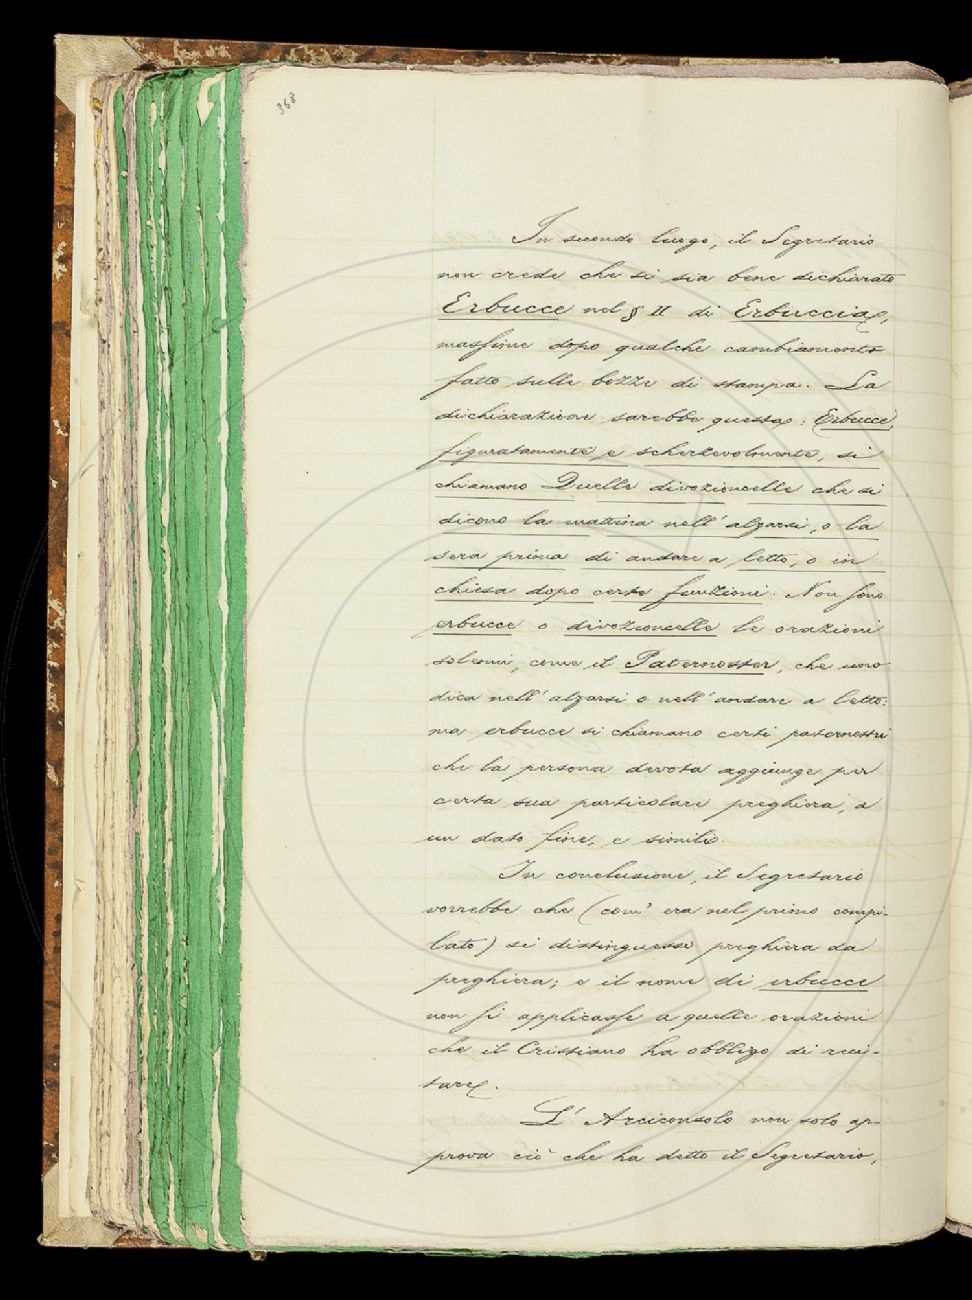 368
In secondo luogo, il Segretario
non crede che si sia bene dichiarato
Erbucce nel § II di Erbuccia,
massime dopo qualche cambiamento
fatto sulle bozze di stampa. La
dichiarazione sarebbe questa: Erbucce,
figuratamente e scherzevolmente, si
chiamano Quelle divozioncelle che si
dicono la mattina nell'alzarsi, o la
sera prima di andare a letto, o in
chiesa dopo certe funzioni. Non sono
erbucce o divozioncelle le orazioni
solenni, come il Paternoster, che uno
dica nell'alzarsi o nell'andare a letto:
ma erbucce si chiamano certi paternostri
che la persona devota aggiunge per
certa sua particolare preghiera, a
un dato fine, e simili.
In conclusione, il Segretario
vorrebbe che (com' era nel primo compi-
lato) si distinguesse preghiera da
preghiera; e il nome di erbucce
non si applicasse a quelle orazioni
che il Cristiano ha obbligo di reci-
tare.
L'Arciconsolo non solo ap-
prova ciò che ha detto il Segretario,